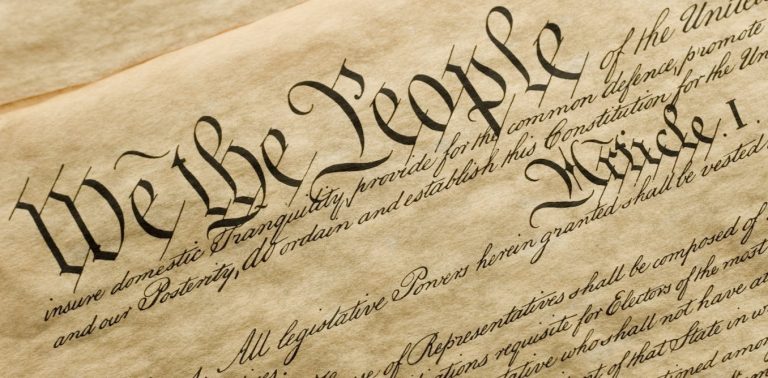 We the People of the United
insure domestic Tranquility, provide for the common defence, promote
and our Posterity, do ordain and establish this Constitution for the Un
Article. I.
All legislative Powers herein granted shall be vested
se of Representatives shall be composed of
ations requisite for Electors of the most
tative who shall not have at
nt of that State in w
tioned amon